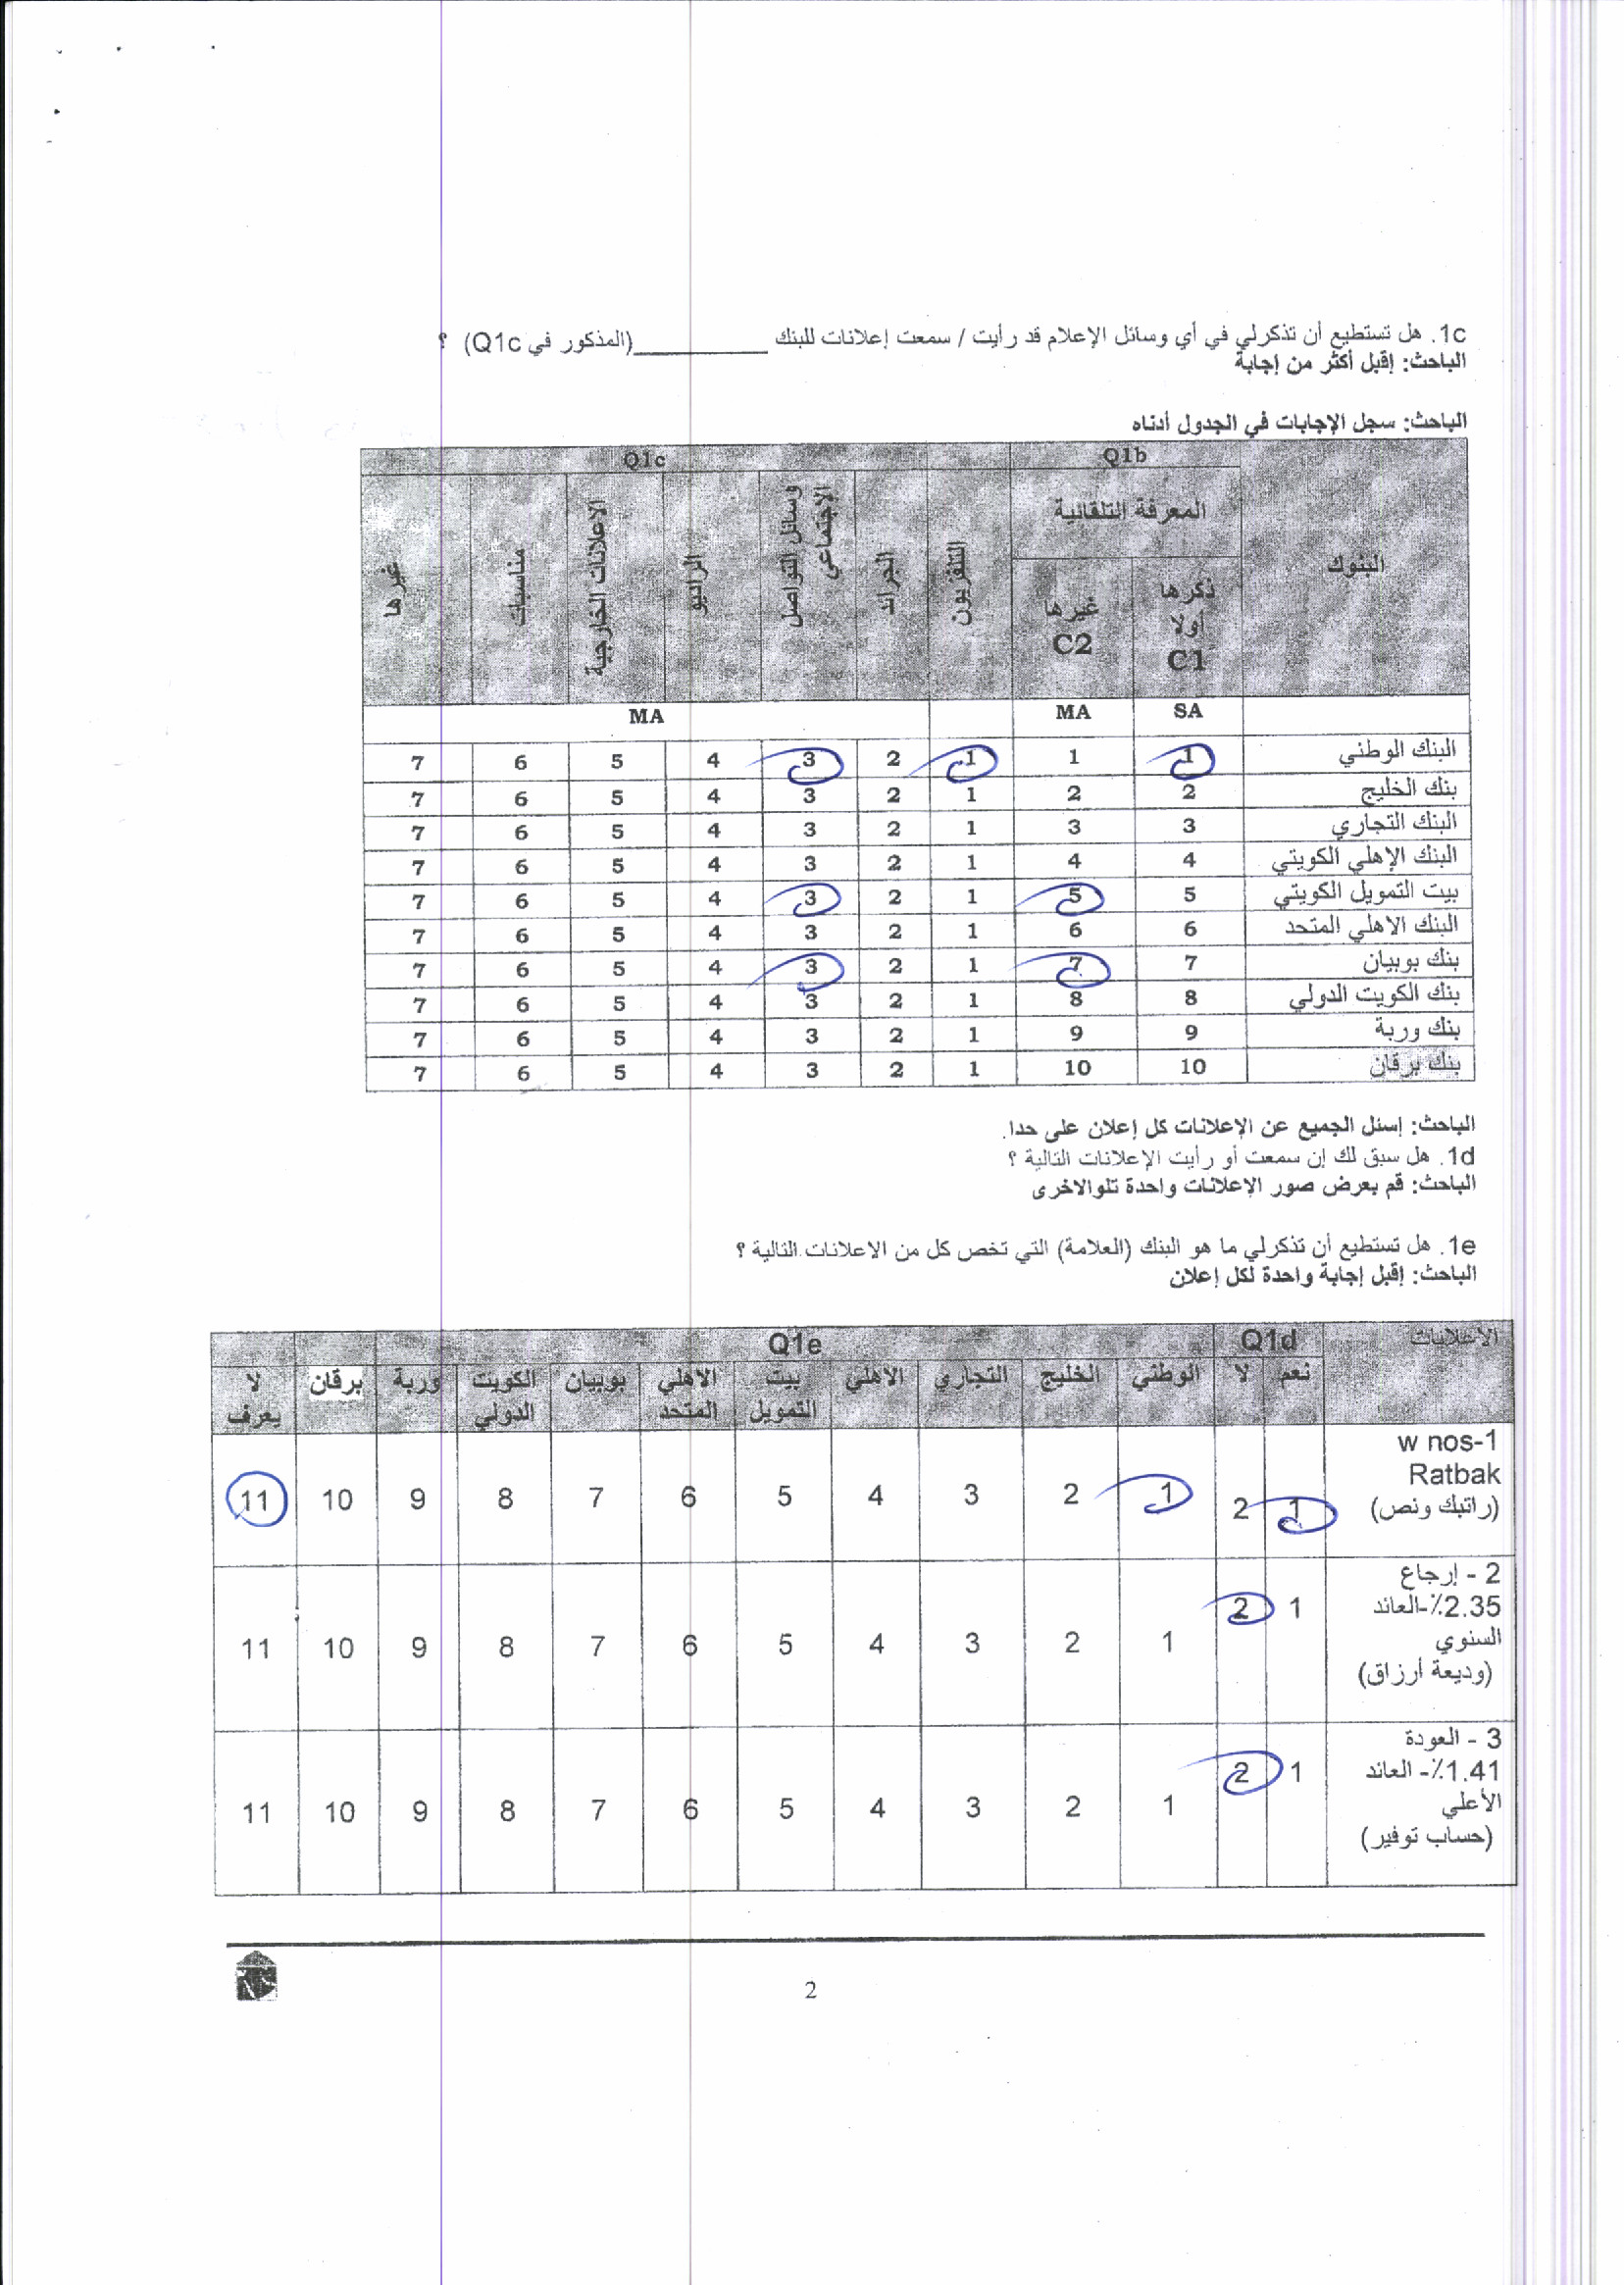 1c. هل تستطيع أن تذكرلي في أي وسائل الإعلام قد رأيت / سمعت إعلانات للبنك __________(المذكور في Q1c) ؟
الباحث: إقبل أكثر من إجابة
الباحث: سجل الإجابات في الجدول أدناه
البنوك Q1b Q1c
المعرفة التلقائية التلفزيون الجرائد وسائل التواصل الاجتماعي الراديو الاعلانات الخارجية مناسبات غيرها
ذكرها أولا C1 غيرها C2
SA MA MA
البنك الوطني 1 1 1 2 3 4 5 6 7
بنك الخليج 2 2 1 2 3 4 5 6 7
البنك التجاري 3 3 1 2 3 4 5 6 7
البنك الإهلي الكويتي 4 4 1 2 3 4 5 6 7
بيت التمويل الكويتي 5 5 1 2 3 4 5 6 7
البنك الاهلي المتحد 6 6 1 2 3 4 5 6 7
بنك بوبيان 7 7 1 2 3 4 5 6 7
بنك الكويت الدولي 8 8 1 2 3 4 5 6 7
بنك وربة 9 9 1 2 3 4 5 6 7
بنك برقان 10 10 1 2 3 4 5 6 7
الباحث: إسئل الجميع عن الإعلانات كل إعلان على حدا.
1d. هل سبق لك إن سمعت أو رأيت الإعلانات التالية ؟
الباحث: قم بعرض صور الإعلانات واحدة تلوالاخرى
1e. هل تستطيع أن تذكرلي ما هو البنك (العلامة) التي تخص كل من الاعلانات التالية ؟
الباحث: إقبل إجابة واحدة لكل إعلان
الاعلانات Q1d Q1e
نعم لا الوطني الخليج التجاري الاهلي بيت التمويل الاهلي المتحد بوبيان الكويت الدولي وربة برقان لا يعرف
w nos-1
Ratbak
(راتبك ونص) 1 2 1 2 3 4 5 6 7 8 9 10 11
2 - إرجاع
2.35٪-العائد
السنوي
(وديعة أرزاق) 1 2 1 2 3 4 5 6 7 8 9 10 11
3 - العودة
1.41٪- العائد
الأعلي
(حساب توفير) 1 2 1 2 3 4 5 6 7 8 9 10 11
2